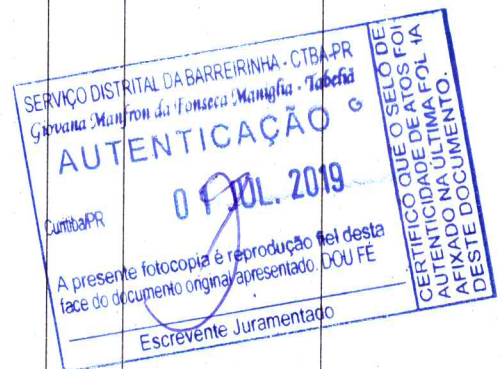 SERVIÇO DISTRITAL DA BARREIRINHA - CTBA-PR
Giovana Manfron da Fonseca Maniglia - Tabeliã
AUTENTICAÇÃO G
Curitiba/PR
01 JUL. 2019
A presente fotocopia é reprodução fiel desta
face do documento original apresentado. DOU FÉ
Escrevente Juramentado
CERTIFICO QUE O SELO DE
AUTENTICIDADE DE ATOS FOI
AFIXADO NA ÚLTIMA FOLHA
DESTE DOCUMENTO.